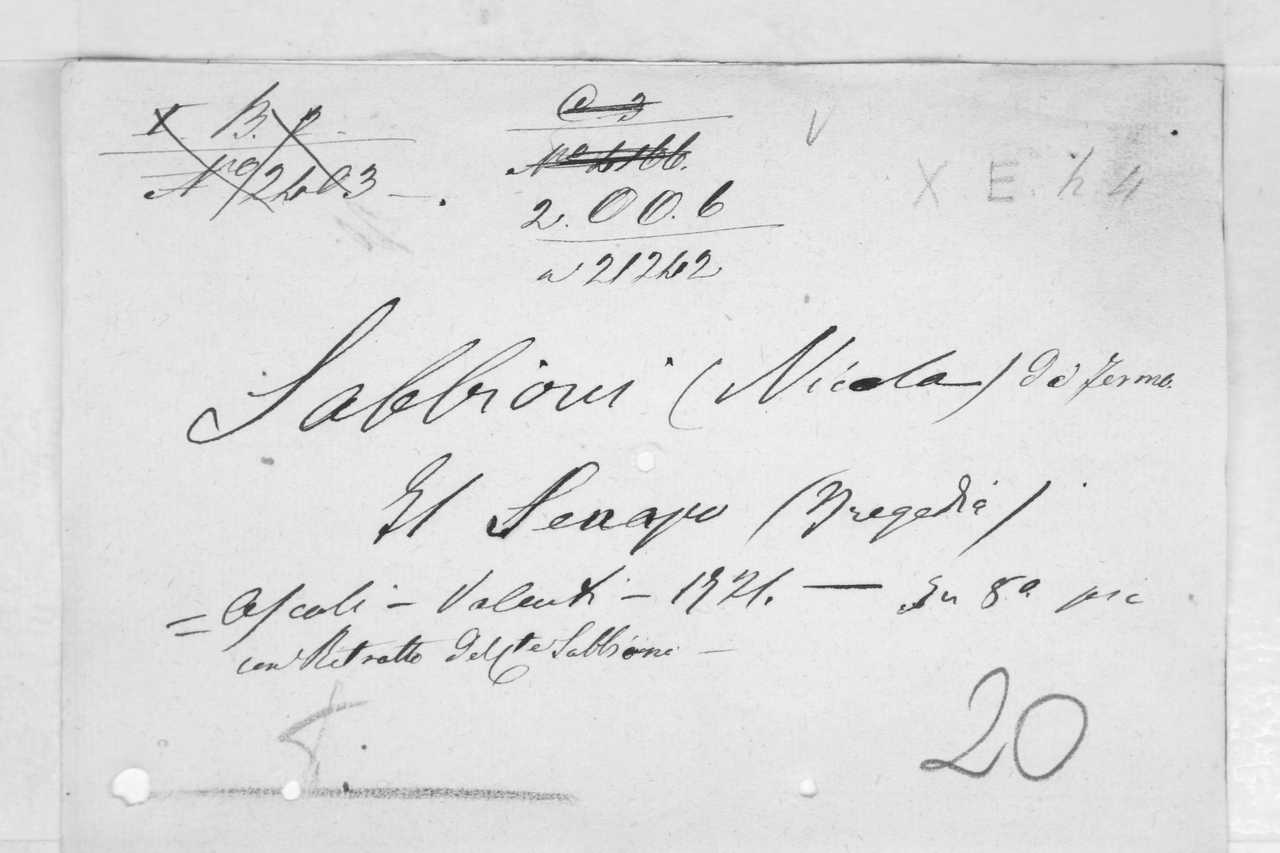 V. B. 2.
Nro 2403
C. 3
Nro 4166.
2. OO. 6
n 21242
X E. h 4
Sabbioni (Nicola) di Fermo.
Il Senapo (Tragedia)
= Ascoli - Valenti - 1821. — In 8º pic
con Ritratto del Cte Sabbioni -
20